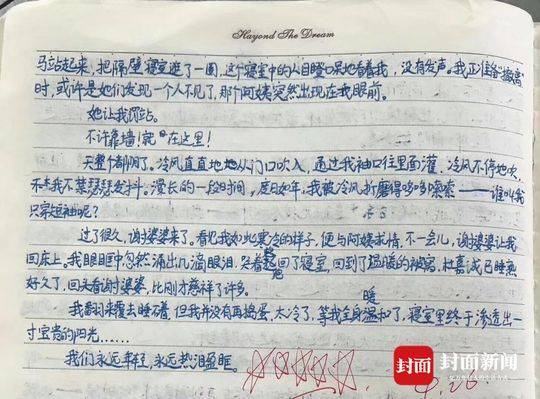 Hayond The Dream
马站起来，把隔壁寝室逛了一圈，这个寝室中的人目瞪口呆地看着我，没有发声。我正准备"撤离"
时，或许是她们发现一个人不见了，那个阿姨突然出现在我眼前。
她让我罚站。
不许靠墙！就在这里！
天整个都阴了。冷风直直地从门口吹入，通过我袖口往里面灌，冷风不停地吹，
我不禁瑟瑟发抖。漫长的一段时间，度日如年，我被冷风折磨得哆哆嗦嗦——谁叫我
只穿短袖呢？
过了很久，谢婆婆来了。看见我如此寒冷的样子，便与阿姨求情，不一会儿，谢婆婆让我
回床上。我眼眶中忽然涌出几滴眼泪，哭着跑回了寝室，回到了温暖的被窝，杜嘉诚已睡熟
好久了，回头看谢婆婆，比刚才慈祥了许多。
我翻来覆去睡不着，但我并没有再捣蛋，太冷了，等我全身温暖了，寝室里终于渗透出一
寸宝贵的阳光……
我们永远年轻，永远热泪盈眶。
4.26
封面 封面新闻